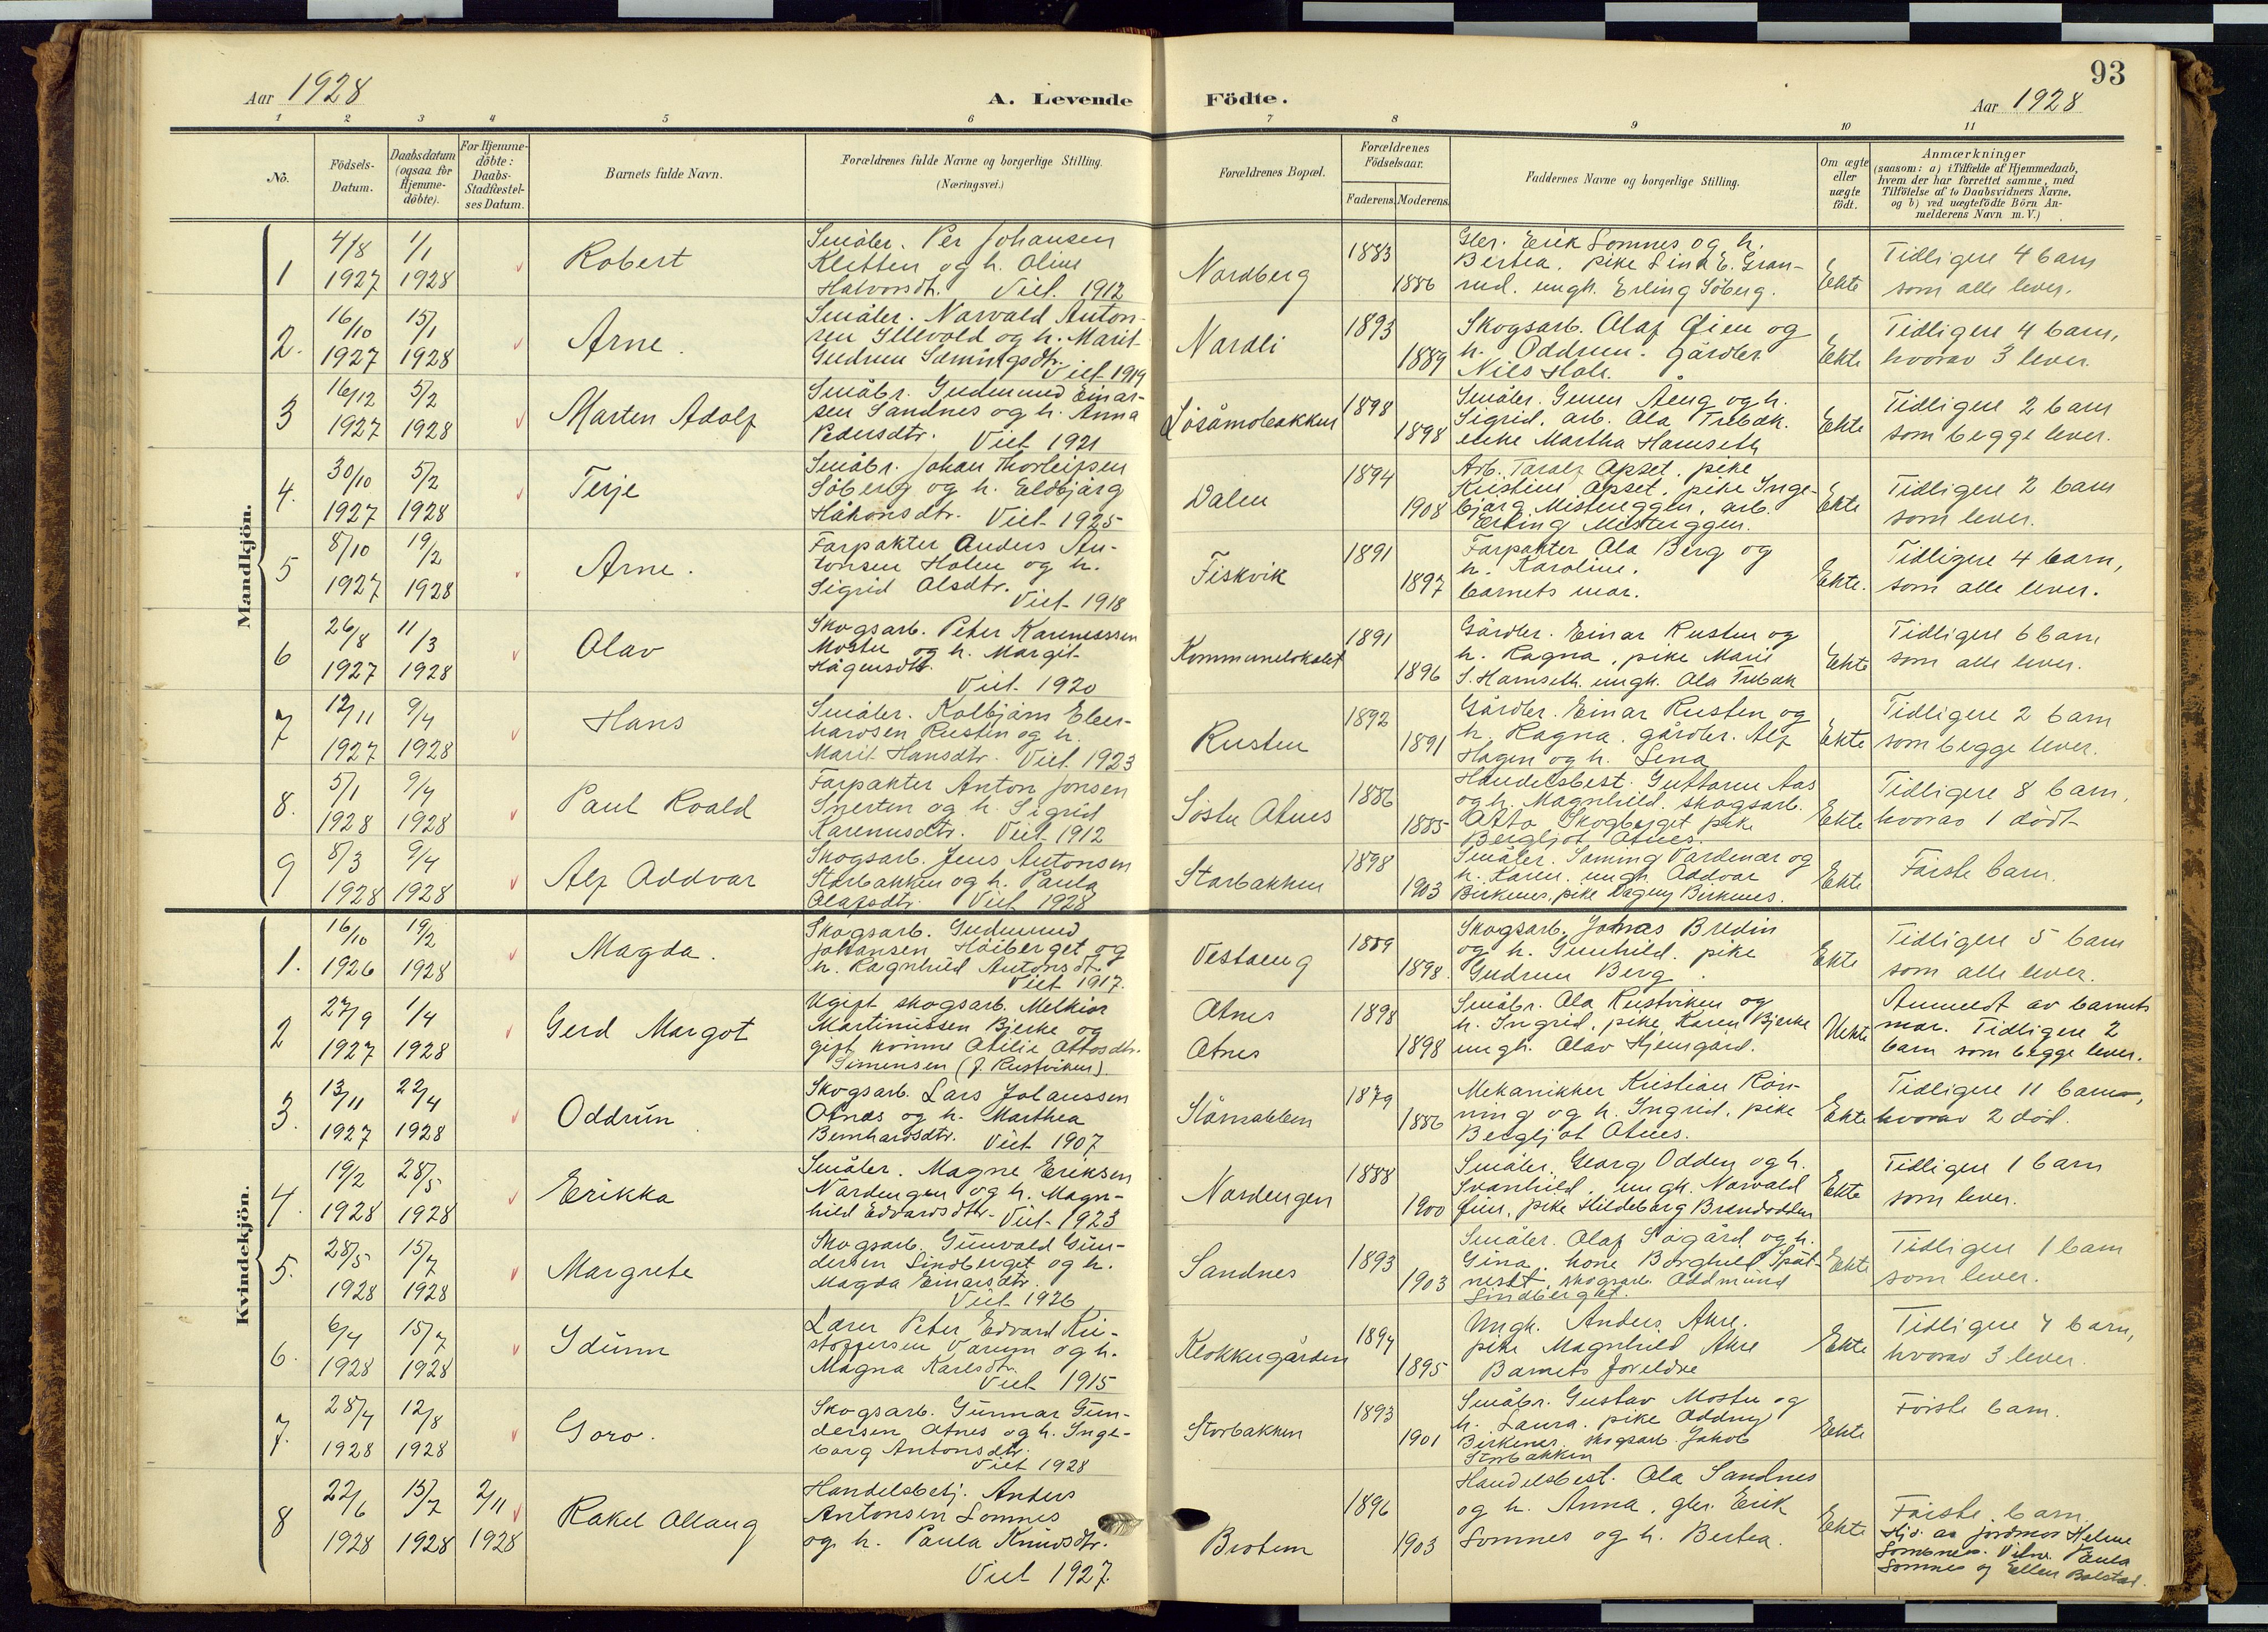 93
Aar 1928
A. Levende Födte.
Aar 1928
1 2 3 4 5 6 7 8 9 10 11
No.
Födsels-
Datum.
Daabsdatum
(ogsaa for
Hjemme-
döbte).
For Hjemme-
döbte:
Daabs-
Stadfæstel-
ses Datum.
Barnets fulde Navn.
Forældrenes fulde Navne og borgerlige Stilling.
(Næringsvei.)
Forældrenes Bopæl.
Forældrenes
Födselsaar.
Faderens. Moderens.
Faddernes Navne og borgerlige Stilling.
Om ægte
eller
uægte
födt.
Anmærkninger
(saasom: a) i Tilfælde af Hjemmedaab,
hvem der har forrettet samme, med
Tilföielse af to Daabsvidners Navne,
og b) ved uægtefödte Börn An-
melderens Navn m. V.)
Mandkjön.
1
4/8
1927
1/1
1928
Robert
Småbr. Per Johansen
Kletten og h. Oline
Halvorsdt. Viet. 1912
Nordberg
1883
1886
Gbr. Erik Somnes og h.
Bertea, pike Lina E. Gran-
rud. ungk. Erling Söberg.
Ekte
Tidligere 4 barn
som alle lever.
2.
16/10
1927
15/1
1928
Arne.
Småbr. Narvald Anton-
sen Illevold og h. Marit
Gudrun Sæmingsdtr.
Viet 1919
Nordli
1893
1889
Skogsarb. Olaf Öien og
h. Oddrun. gårdbr.
Nils Hole.
Ekte
Tidligere 4 barn,
hvorav 3 lever.
3
16/12
1927
5/2
1928
Marten Adolf
Småbr. Gudmund Einar-
sen Sandnes og h. Anna
Pedersdtr. Viet 1921
Lösåmobakken
1898
1898
Småbr. Gunn Åeng og h.
Sigrid, arb. Ola Trebak.
enke Martha Hamseth
Ekte
Tidligere 2 barn
som begge lever.
4.
30/10
1927
5/2
1928
Terje
Småbr. Johan Thorleifsen
Söberg og h. Eldbjörg
Håkonsdtr. Viet 1925
Dalen
1894
1908
Arb. Taralf Opset. pike
Kristine Opset. pike Inge-
björg Misterggen, arb.
Erling Misterggen.
Ekte
Tidligere 2 barn
som lever.
5
8/10
1927
19/2
1928
Arne.
Forpakter Anders An-
tonsen Holen og h.
Sigrid Olsdtr.
Viet 1918
Fiskvik
1891
1897
Forpakter Ola Berg og
h. Karoline.
barnets mor.
Ekte.
Tidligere 4 barn,
som alle lever.
6
26/8
1927
11/3
1928
Olav
Skogsarb. Peter Karenussen
Mostu og h. Margit
Hågensdtr.
Viet 1920
Kommunelokalet
1891
1896
Gårdbr. Einar Rusten og
h. Ragna, pike Marie
S. Hamseth. ungk. Ola Trebak
Ekte
Tidligere 6 barn
som alle lever.
7
12/11
1927
9/4
1928
Hans
Småbr. Kolbjörn Eber-
hardsen Rusten og h.
Marit Hansdtr. Viet 1923
Rusten
1892
1891
Gårdbr. Einar Rusten og
h. Ragna, gårdbr. Alf
Hagen og h. Lena
Ekte
Tidligere 2 barn
som begge lever.
8.
5/1
1928
9/4
1928
Paul Roald
Forpakter Anton Jonsen
Snerten og h. Sigrid
Karenusdtr. Viet 1912
Söstu Atnes
1886
1885
Handelsbest. Guttorm Aas
og h. Magnhild, skogsarb.
Otto Skogberget pike
Bergljot Atnes.
Ekte
Tidligere 8 barn,
hvorav 1 dödt
9
8/3
1928
9/4
1928
Alf Oddvar
Skogsarb. Jens Antonsen
Storbakken og h. Paula
Olafsdtr. Viet 1928
Storbakken
1898
1903
Småbr. Sæming Vardenær og
h. Karen. ungk. Oddvar
Birkenes, pike Dagny Birkenes.
Ekte
Förste barn.
Kvindekjön.
1.
16/10
1926
19/2
1928
Magda.
Skogsarb. Gudmund
Johansen Höiberget og
h. Ragnhild Antonsdt.
Viet 1917.
Vestaeng
1889
1898.
Skogsarb. Johas Bredin
og h. Gunhild. pike
Gudrun Berg.
Ekte
Tidligere 5 barn
som alle lever.
2
27/9
1927
1/4
1928
Gerd Margot
Ugift skogsarb. Melkior
Martinussen Bjerke og
gift kvinne Otilie Ottosdtr.
Simensen (f. Rustviken).
Atnes
Atnes
1898
1898
Småbr. Ola Rustviken og
h. Ingrid, pike Karen Bjerke
ungk. Olav Hjemgård.
Uekte
Anmeldt av barnets
mor. Tidligere 2
barn som begge lever.
3.
13/11
1927
22/4
1928
Oddrun
Skogsarb. Lars Johanssen
Atnes og h. Marthea
Bernhardsdtr. Viet 1907
1879
1886
Mekanikker Kristian Rön-
ning og h. Ingrid, pike
Bergljot Atnes.
Ekte
Tidligere 11 barn,
hvorav 2 död.
4.
19/2
1928
28/5
1928
Erikka
Småbr. Magne Eriksen
Nordengen og h. Magn-
hild Edvardsdtr. Viet 1923
Nordengen
1888
1900
Småbr. Georg Odden og h.
Svanhild, ungk. Narvald
Öien, pike Hildeborg Brandodden
Ekte
Tidligere 1 barn
som lever.
5.
28/5
1928
15/7
1928
Margrete
Skogsarb. Gunvald Gun-
dersen Lindberget og h.
Magda Einarsdtr.
Viet 1926
Sandnes
1893
1903
Småbr. Olaf Sögård og h.
Gina, kone Borghild Spæt-
neset, skogsarb. Oddmund
Lindberget.
Ekte
Tidligere 1 barn
som lever.
6.
6/4
1928
15/7
1928
Idunn
Lærer Peter Edvard Kri-
stoffersen Varum og h.
Magna Karlsdtr.
Viet 1915
Klokkergården
1894
1895
Ungk. Anders Akre.
pike Magnhild Akre
Barnets foreldre
Ekte
Tidligere 4 barn,
hvorav 3 lever.
7.
28/4
1928
12/8
1928
Goro.
Skogsarb. Gunnar Gun-
dersen Atnes og h. Inge-
borg Antonsdtr.
Viet 1928
Storbakken
1893
1901
Småbr. Gustav Mostu og
h. Laura. pike Oddny
Birkenes, skogsarb. Jakob
Storbakken
Ekte
Förste barn.
8
22/6
1928
13/7
1928
2/11
1928
Rakel Ollaug
Handelsbetj. Anders
Antonsen Somnes
og h. Paula Knudsdtr.
Viet 1927.
Brotun
1896
1903
Handelsbest. Ola Sandnes
og h. Anna, gbr. Erik
Somnes og h. Bertea.
Ekte
Förste barn.
Hjd. av jordmor Helene
Somnes. Vitne Paula
Somnes og Ellen Bolstad.